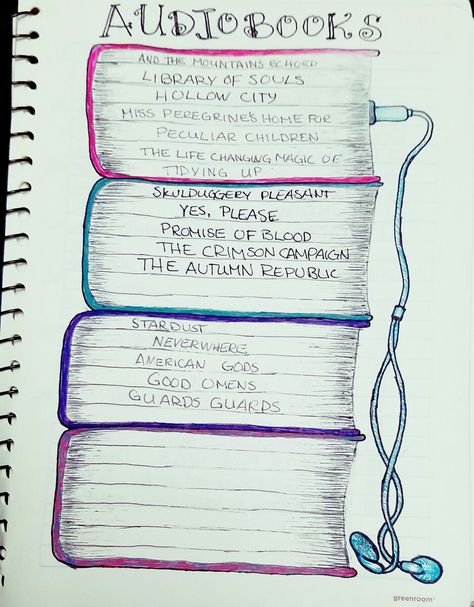 AUDIOBOOKS
AND THE MOUNTAINS ECHOED
LIBRARY OF SOULS
HOLLOW CITY
MISS PEREGRINE'S HOME FOR
PECULIAR CHILDREN
THE LIFE CHANGING MAGIC OF
TIDYING UP
SKULDUGGERY PLEASANT
YES, PLEASE
PROMISE OF BLOOD
THE CRIMSON CAMPAIGN
THE AUTUMN REPUBLIC
STARDUST
NEVERWHERE
AMERICAN GODS
GOOD OMENS
GUARDS GUARDS
greenroom